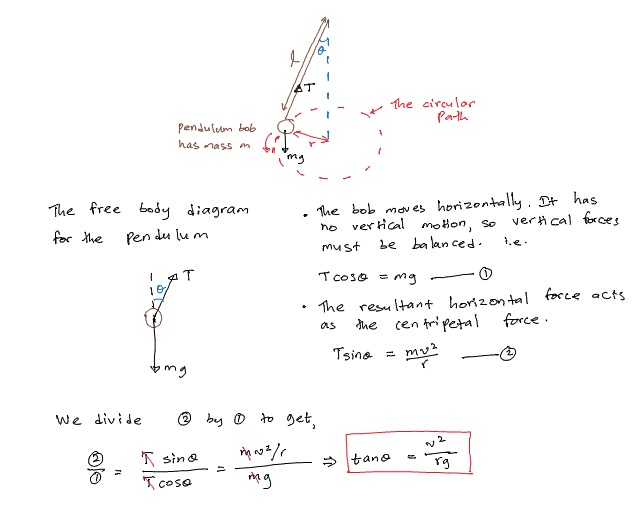 l
θ
T
The circular
Path
Pendulum bob
has mass m
r
mg
The free body diagram
for the pendulum
θ
T
mg
• The bob moves horizontally. It has
no vertical motion, so vertical forces
must be balanced. i.e.
Tcosθ = mg —— ①
• The resultant horizontal force acts
as the centripetal force.
Tsinθ = mv²/r —— ②
We divide ② by ① to get,
②/① = T sinθ / T cosθ = mv²/r / mg ⇒ tanθ = v²/rg